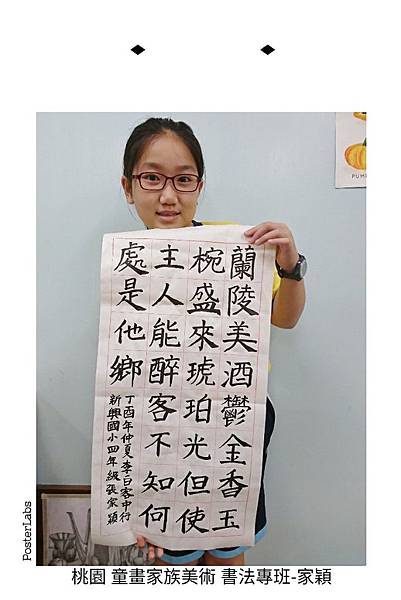 蘭陵美酒鬱金香玉
椀盛來琥珀光但使
主人能醉客不知何
處是他鄉
丁酉年仲夏李白客中行
新興國小四年級張家穎
PUM
PosterLabs
桃園 童畫家族美術 書法專班-家穎